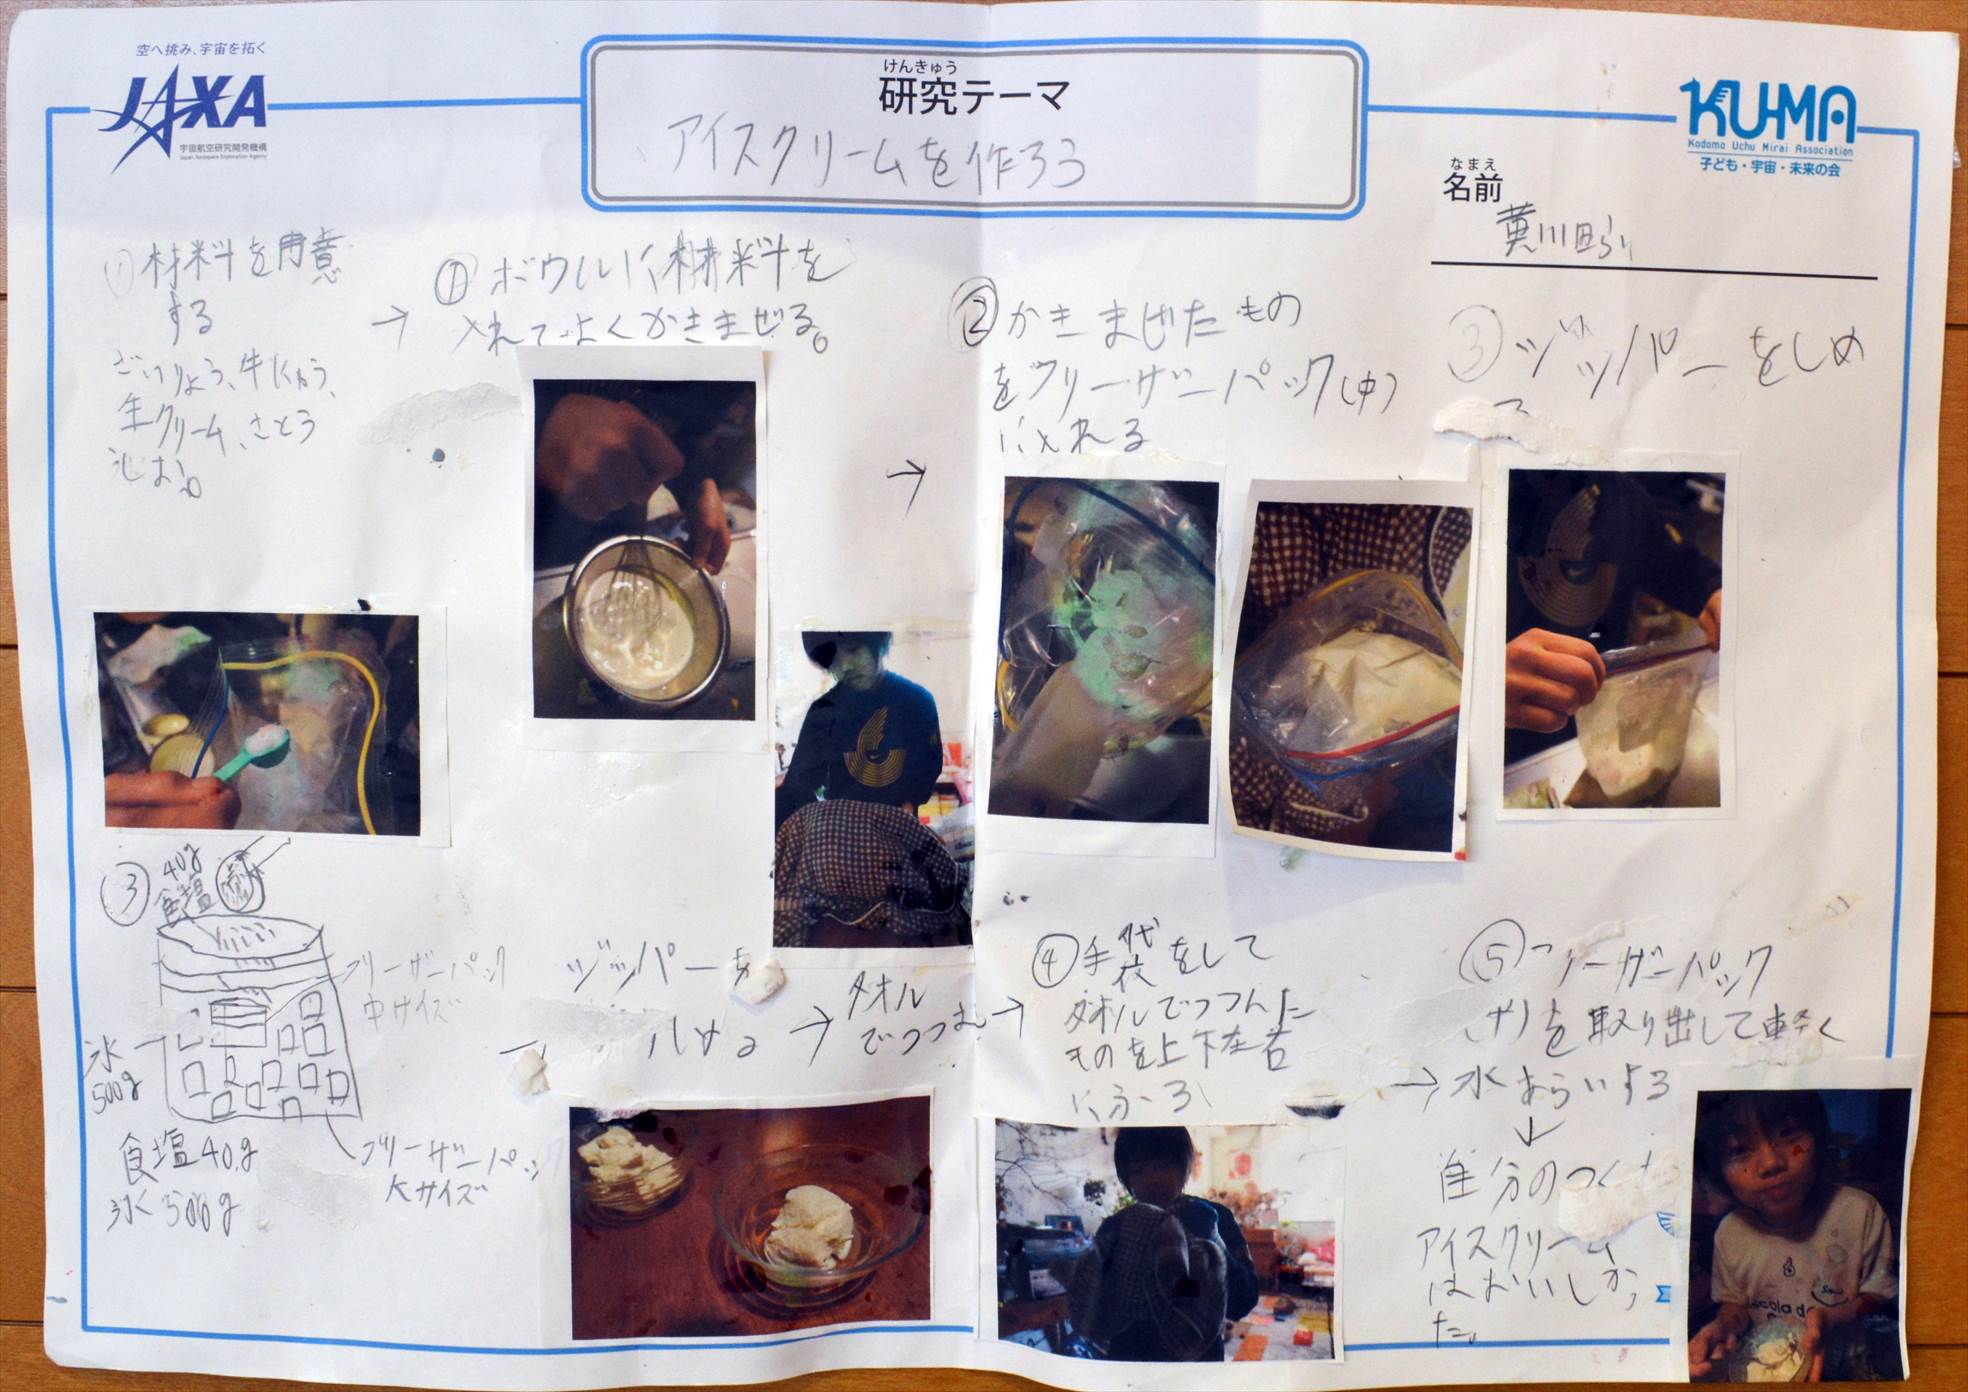 空へ挑み、宇宙を拓く
JAXA
宇宙航空研究開発機構
Japan Aerospace Exploration Agency
けんきゅう
研究テーマ
アイスクリームを作ろう
KU-MA
Kodomo Uchu Mirai Association
子ども・宇宙・未来の会
なまえ
名前
黄川田
① 材料を用意
する
牛にゅう、
生クリーム、さとう
しお。
→
① ボウルに材料を
入れてよくかきまぜる。
→
② かきまぜたもの
をフリーザーパック(中)
に入れる
③ ジッパーをしめ
る
③
40g
食塩
フリーザーパック
中サイズ
氷
500g
フリーザーパッ
大サイズ
食塩40g
氷500g
→
ジッパーを
しめる
→
タオル
でつつむ
→
④ 手袋をして
タオルでつつんだ
ものを上下左右
にふる
⑤ フリーザーパック
(中)を取り出して軽く
→ 水あらいする
↓
自分のつくった
アイスクリーム
はおいしかっ
た。